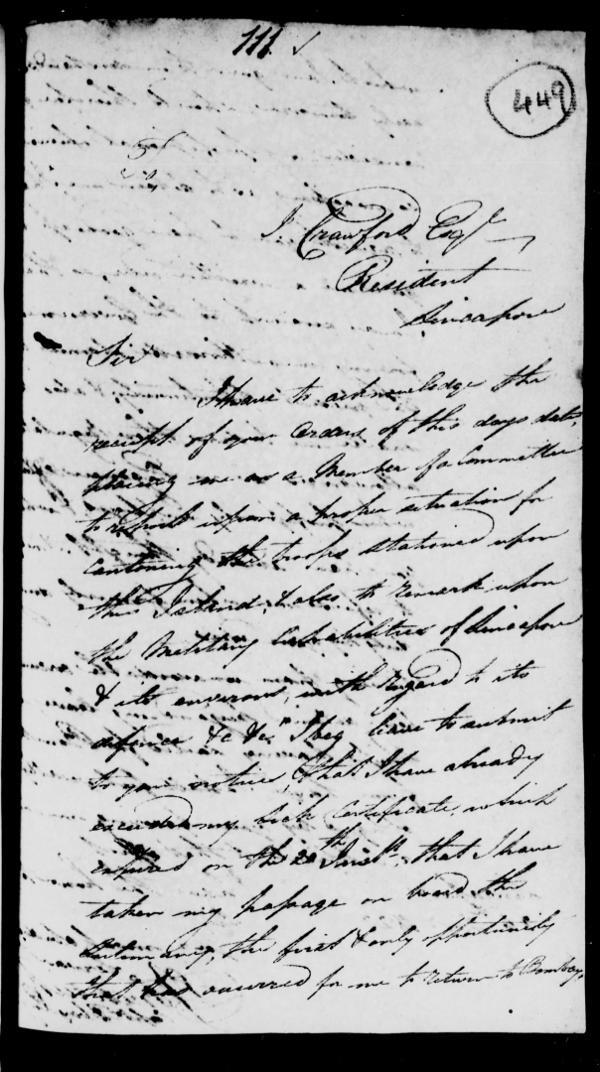 111
449
J Crawford Esqr
Resident
Sincapore
Sir
I have to acknowledge the
receipt of your Orders of this days date,
placing me as a Member of a Committee
to report upon a proper situation for
cantoning the troops stationed upon
this Island, & also to remark upon
the Military Capabilities of Sincapore
& its environs, with regard to its
defence &c &c. I beg leave to submit
to your notice, that I have already
exceeded my Sick Certificate, which
expired on the 20th June, that I have
taken my passage on board the
the first & only opportunity
that has occurred for me to return to Bombay,